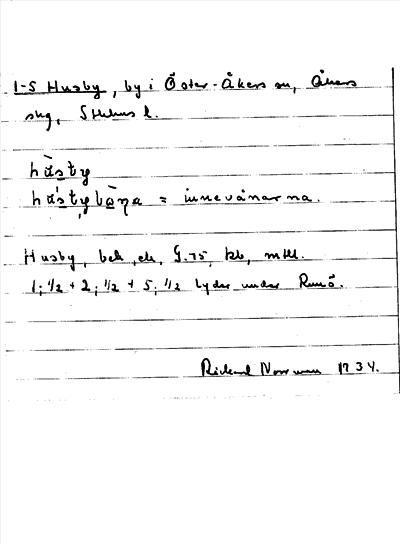 1-5 Husby, by i Öster-Åkers sn, Åkers
skg, Sthlms l.
hùsty
hústybòna = innevånarna.
Husby, bek, ek, G.75, kb, mtl.
1; 1/2 + 2; 1/2 + 5; 1/2 lyder under Runö.
Rickard Norrman 1934.